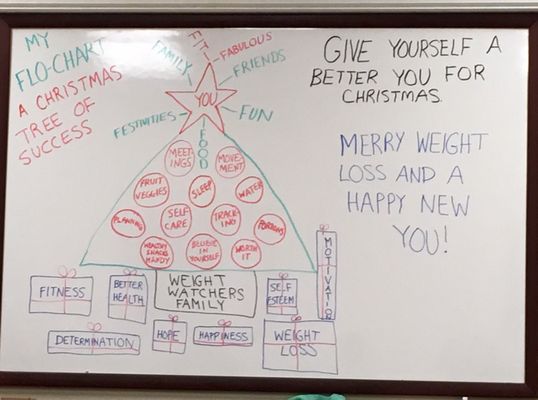 MY
FLO-CHART
A CHRISTMAS
TREE OF
SUCCESS
FIT
FABULOUS
FAMILY
FRIENDS
YOU
FESTIVITIES
FUN
FOOD
MEET-
INGS
MOVE-
MENT
FRUIT
VEGGIES
SLEEP
WATER
PLANNING
SELF
CARE
TRACK-
ING
PORTIONS
HEALTHY
SNACKS
HANDY
BELIEVE
IN
YOURSELF
WORTH
IT
WEIGHT
WATCHERS
FAMILY
FITNESS
BETTER
HEALTH
SELF
ESTEEM
MOTIVATION
DETERMINATION
HOPE
HAPPINESS
WEIGHT
LOSS
GIVE YOURSELF A
BETTER YOU FOR
CHRISTMAS.
MERRY WEIGHT
LOSS AND A
HAPPY NEW
YOU!